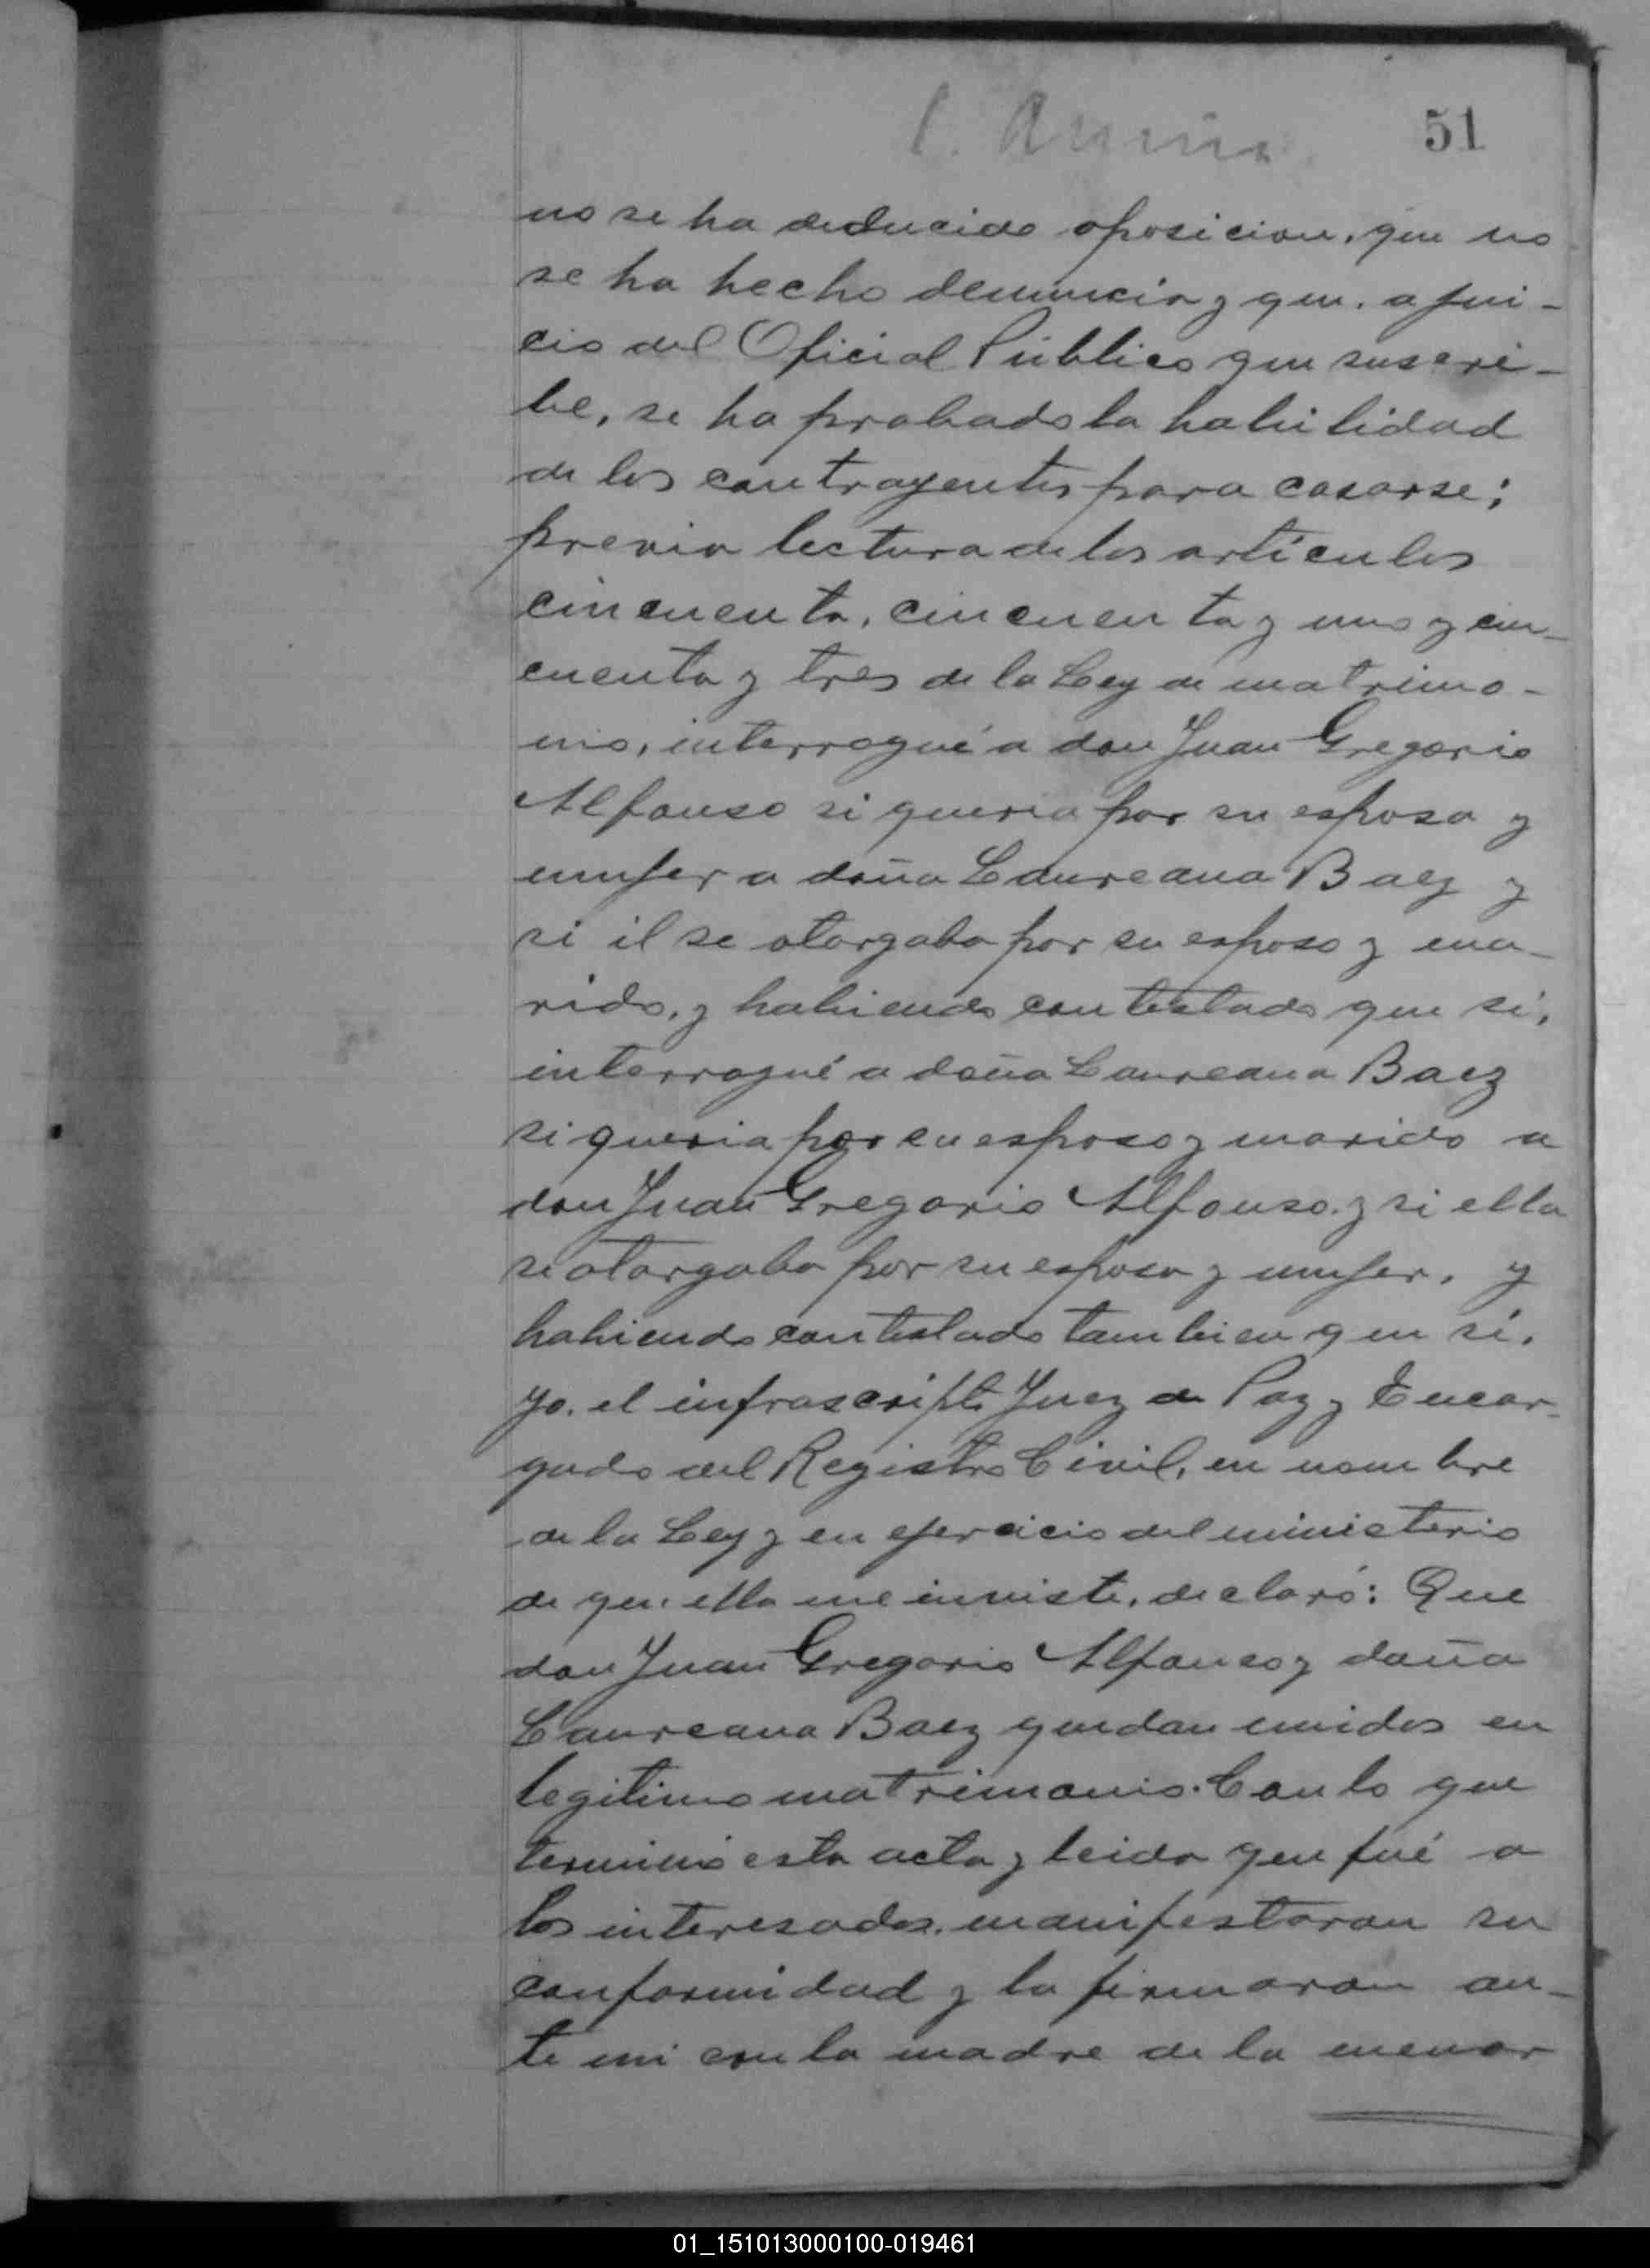 51
no se ha deducido oposicion, que no
se ha hecho denuncia y que, a jui-
cio del Oficial Público que suscri-
be, se ha probado la habilidad
de los contrayentes para casarse;
previa lectura de los artículos
cincuenta, cincuenta y uno y cin-
cuenta y tres de la Ley de matrimo-
nio, interrogué a don Juan Gregorio
Alfonso si queria por su esposa y
mujer a doña Laureana Baez y
si él se otorgaba por su esposo y ma-
rido, y habiendo contestado que sí,
interrogué a doña Laureana Baez
si queria por su esposo y marido a
don Juan Gregorio Alfonso y si ella
se otorgaba por su esposa y mujer, y
habiendo contestado tambien que sí,
yo, el infrascripto Juez de Paz y Encar-
gado del Registro Civil, en nombre
de la Ley y en ejercicio del ministerio
de que ella me inviste, declaró: Que
don Juan Gregorio Alfonso y doña
Laureana Baez quedan unidos en
legitimo matrimonio. Con lo que
terminó esta acta y leida que fué a
los interesados, manifestaron su
conformidad y la firmaron an-
te mi con la madre de la menor
01_151013000100-019461